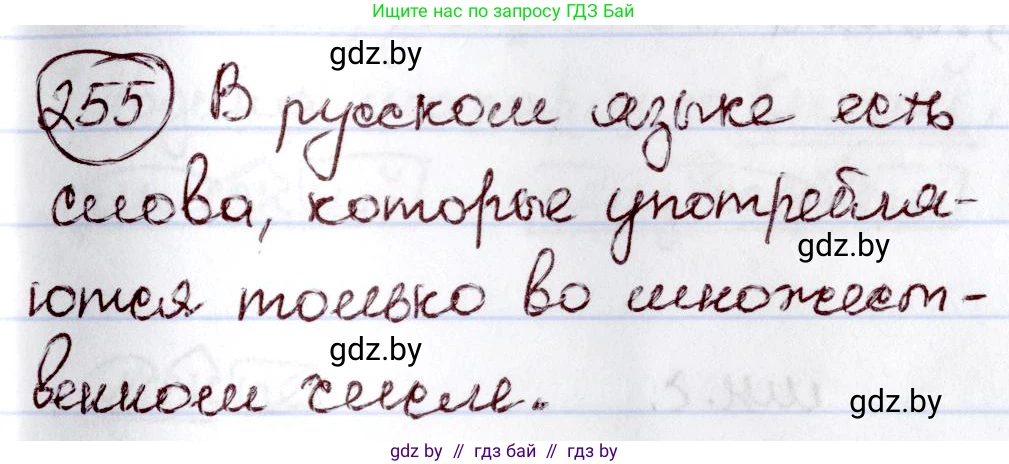 Ищите нас по запросу ГДЗ Бай
gdz.by
255 В русском языке есть
слова, которые употребля-
gdz.by
ются только во множест-
gdz.by
венном числе.
gdz.by
gdz by // гдз бай // gdz by